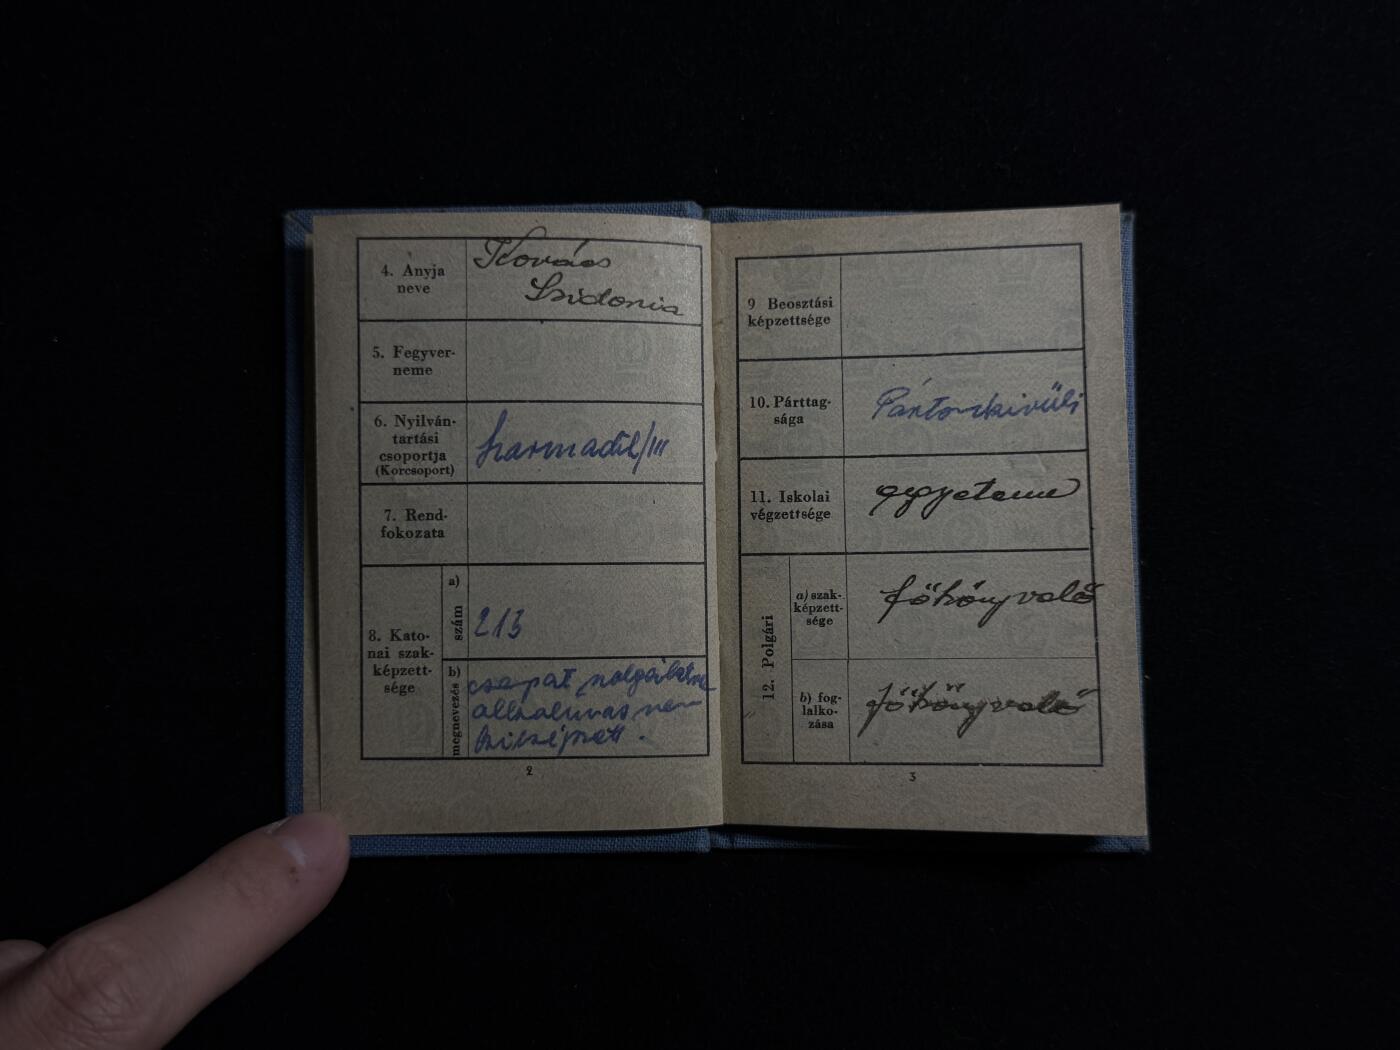 4. Anyja
neve
Kovács
Szidonia
5. Fegyver-
neme
6. Nyilván-
tartási
csoportja
(Korcsoport)
harmadik/III
7. Rend-
fokozata
8. Kato-
nai szak-
képzett-
sége
a)
szám
213
b)
megnevezés
csapat szolgálatra
alkalmas nem
kiképzett.
2
9 Beosztási
képzettsége
10. Párttag-
sága
Pártonkivüli
11. Iskolai
végzettsége
egyeteme
12. Polgári
a) szak-
képzett-
sége
főkönyvelő
b) fog-
lalko-
zása
főkönyvelő
3